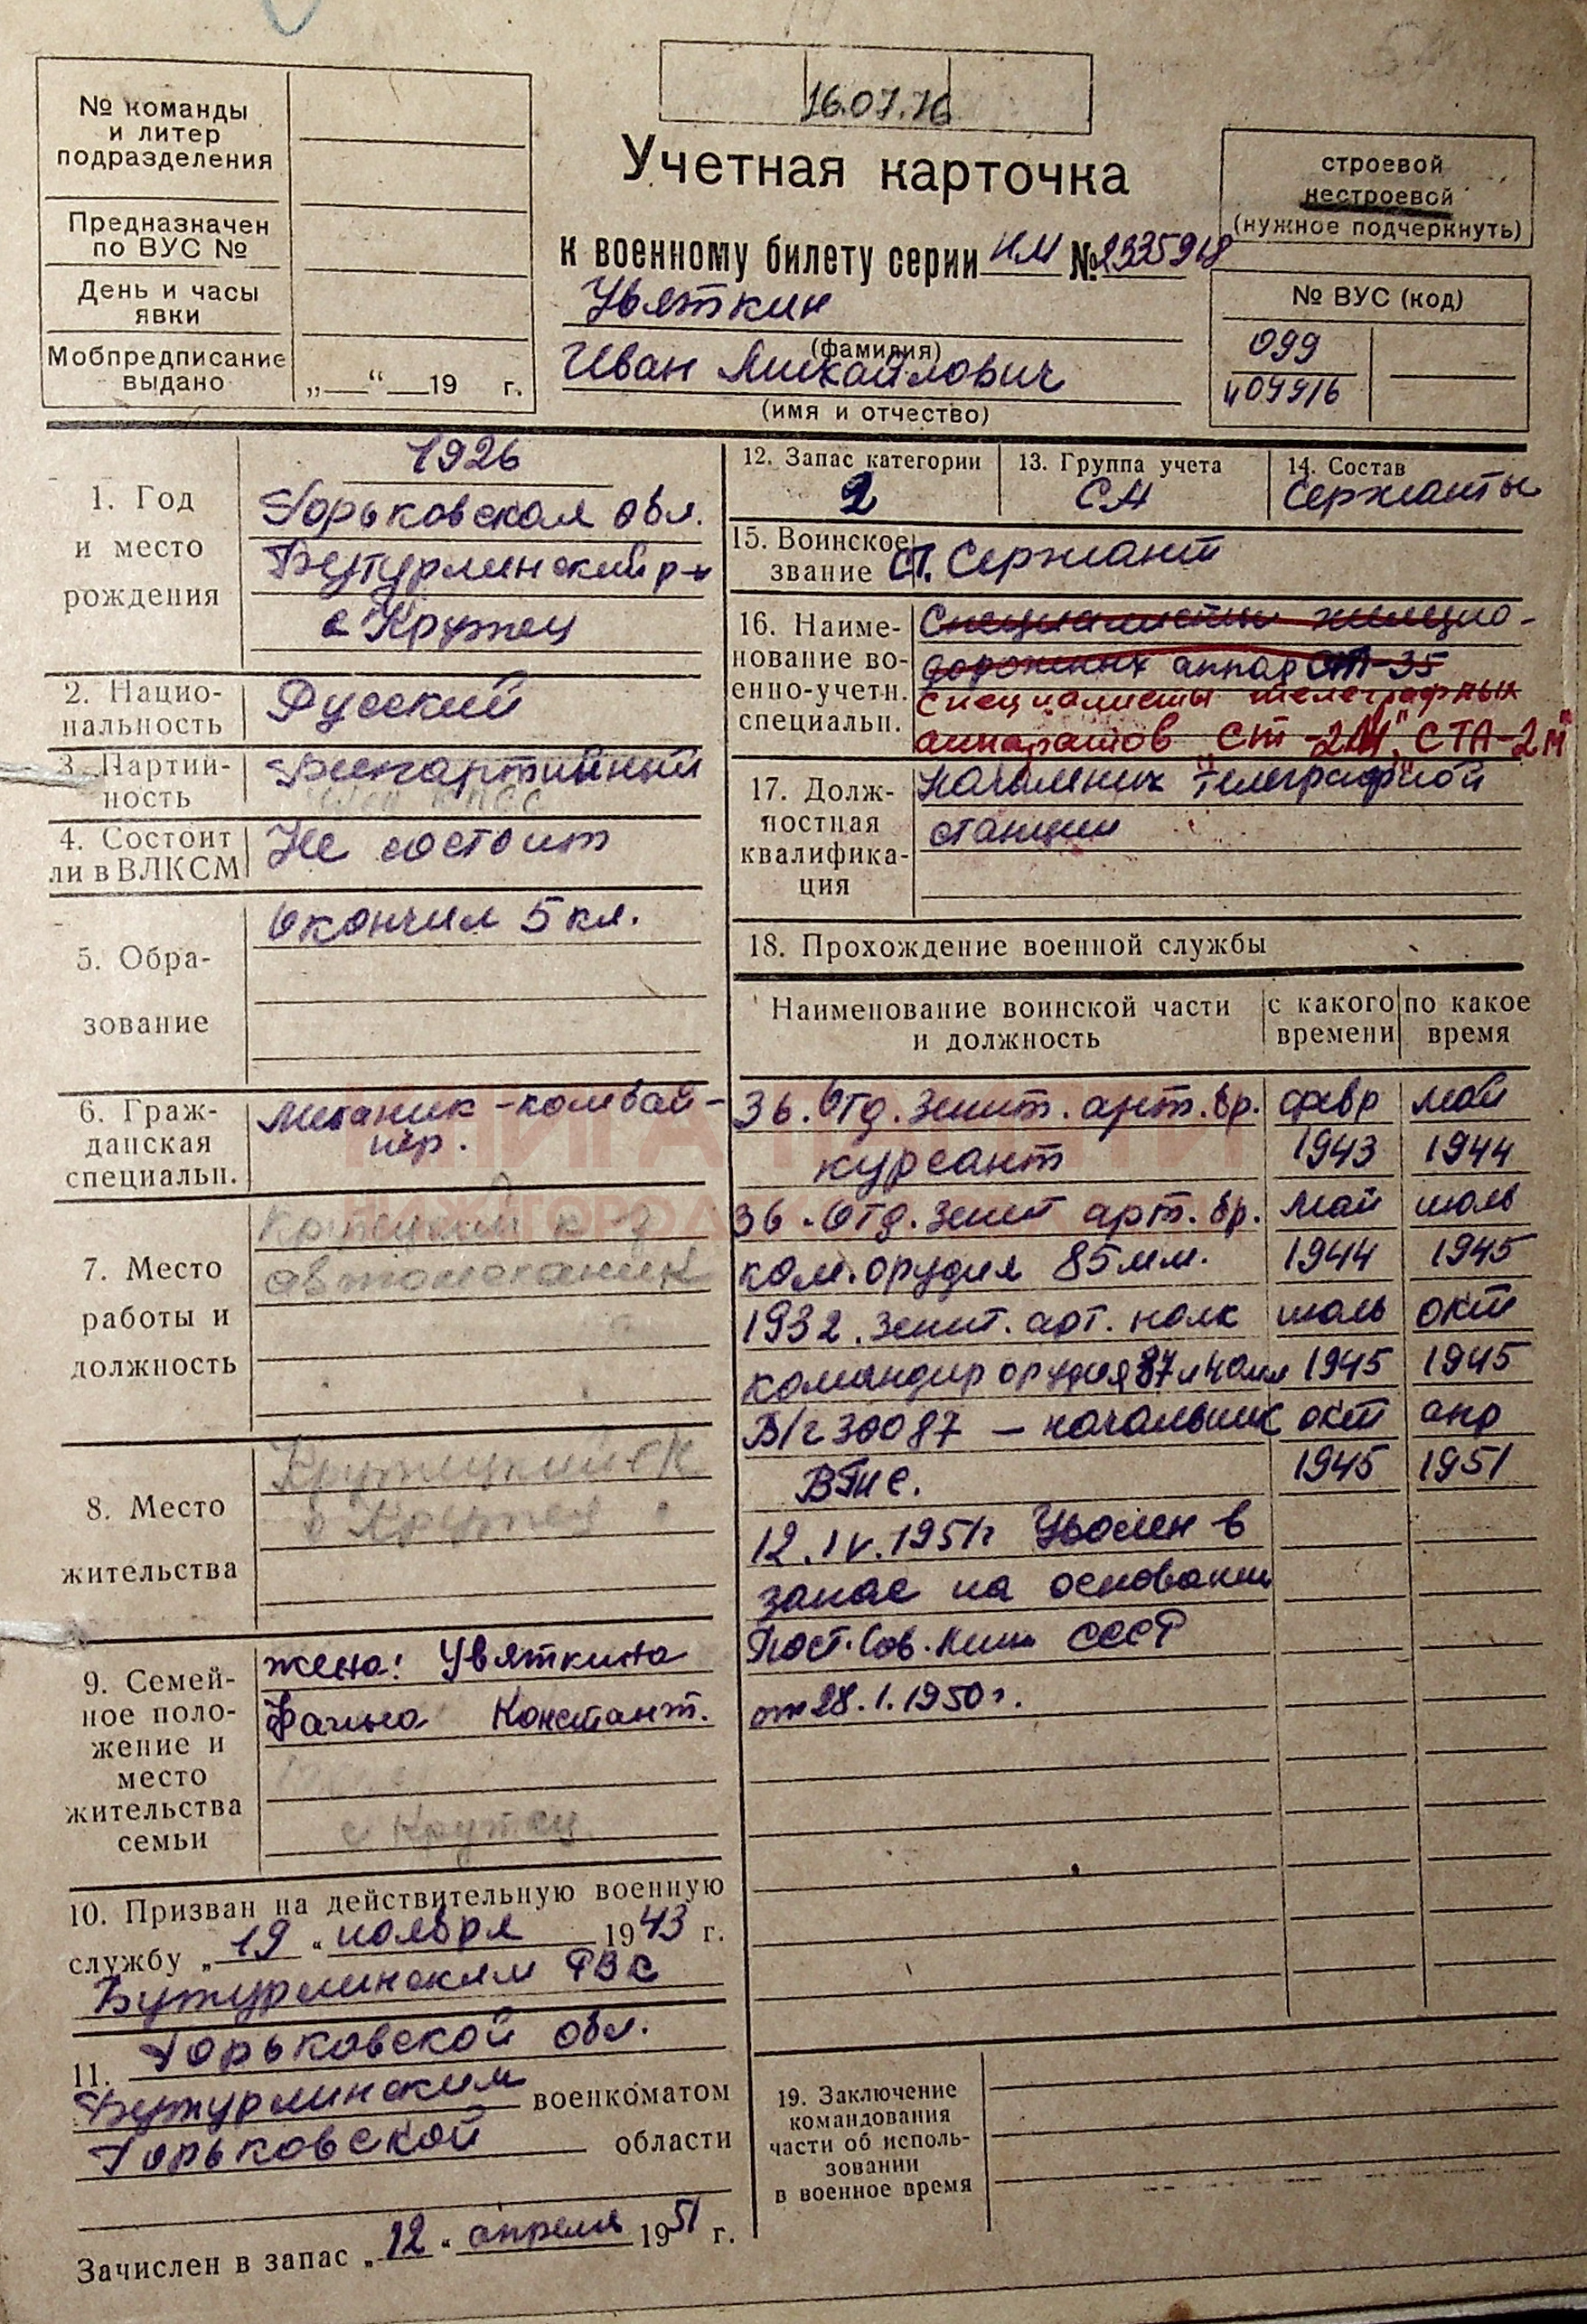 16.07.76
№ команды
и литер
подразделения
Предназначен
по ВУС №
День и часы
явки
Мобпредписание
выдано
„ “ 19 г.
Учетная карточка
к военному билету серии НМ №2335918
Увяткин
(фамилия)
Иван Михайлович
(имя и отчество)
строевой
нестроевой
(нужное подчеркнуть)
№ ВУС (код)
099
409916
1. Год
и место
рождения
1926
Горьковская обл.
Бутурлинский р-н
с Крутец
2. Нацио-
нальность
Русский
3. Партий-
ность
Беспартийный
член КПСС
4. Состоит
ли в ВЛКСМ
Не состоит
5. Обра-
зование
Окончил 5 кл.
6. Граж-
данская
специальн.
Механик-комбай-
нер.
7. Место
работы и
должность
к-з
автомеханик
8. Место
жительства
Крутецкий с/с
с Крутец
9. Семей-
ное поло-
жение и
место
жительства
семьи
жена: Увяткина
Констант.
с Крутец
10. Призван на действительную военную
службу „19“ ноября 1943 г.
Бутурлинским РВК
Горьковской обл.
11.
Бутурлинским военкоматом
Горьковской области
Зачислен в запас „12“ апреля 1951 г.
12. Запас категории
2
13. Группа учета
СА
14. Состав
Сержанты
15. Воинское
звание
Ст. Сержант
16. Наиме-
нование во-
енно-учетн.
специальн.
Специалисты
аппар СТ-35
Специалисты телеграфных
аппаратов „СТ-2М", „СТА-2М"
17. Долж-
ностная
квалифика-
ция
Начальник телеграфной
станции
18. Прохождение военной службы
Наименование воинской части
и должность
с какого
времени
по какое
время
36. Отд. зенит. арт. бр. февр май
курсант 1943 1944
36. Отд. зенит арт. бр. май июль
ком. орудия 85 мм. 1944 1945
1932. зенит. арт. полк июль окт
командир орудия 37 и 40мм 1945 1945
В/ч 30087 – начальник окт апр
1945 1951
12.IV.1951г Уволен в
запас на основании
Пост. Сов. Мин СССР
от 28.1.1950г.
19. Заключение
командования
части об исполь-
зовании
в военное время